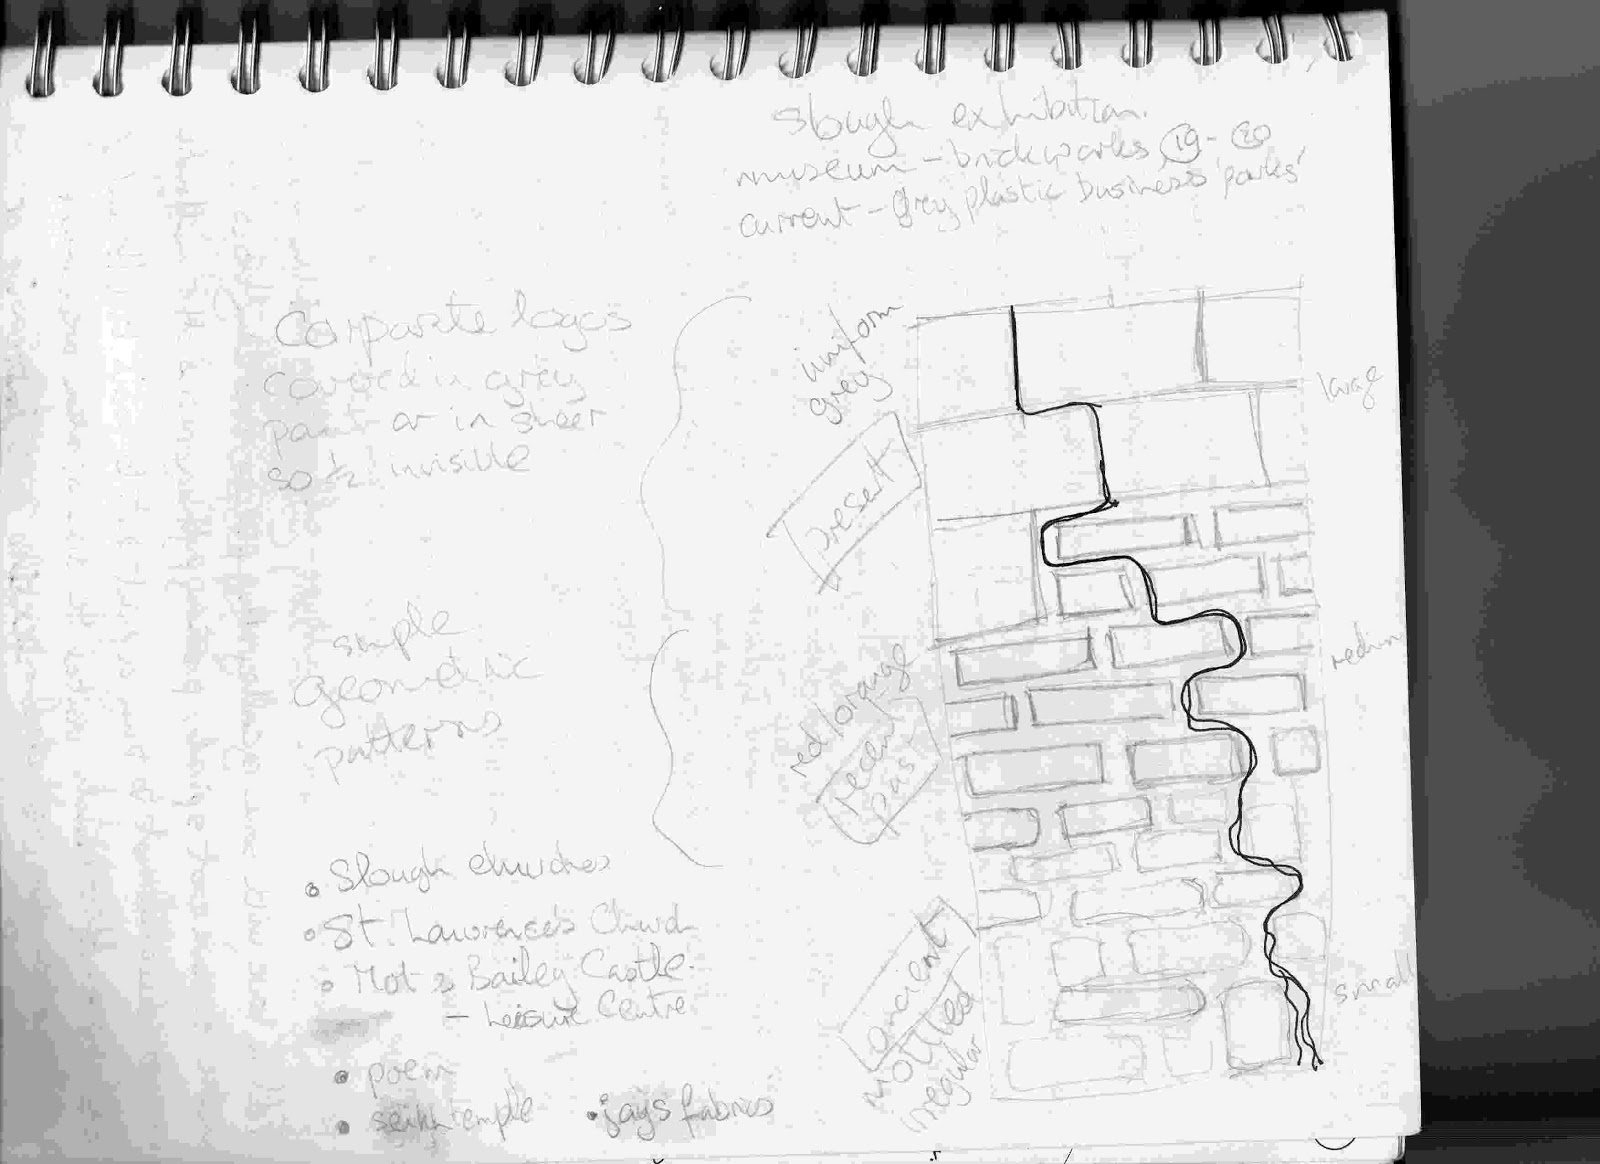 Slough exhibition.
museum - brickworks 19 - 20
current - grey plastic business 'parks'
Corporate logos
covered in grey
paint or in sheer
so 1/2 invisible
simple
geometric
patterns
• Slough churches
• St. Lawrence's Church
• Mot & Bailey Castle.
- Leisure Centre
• poem
• seikh temple
• jays fabrics
uniform
grey
present
red/orange
recent
past
ancient
mottled
irregular
large
medium
small